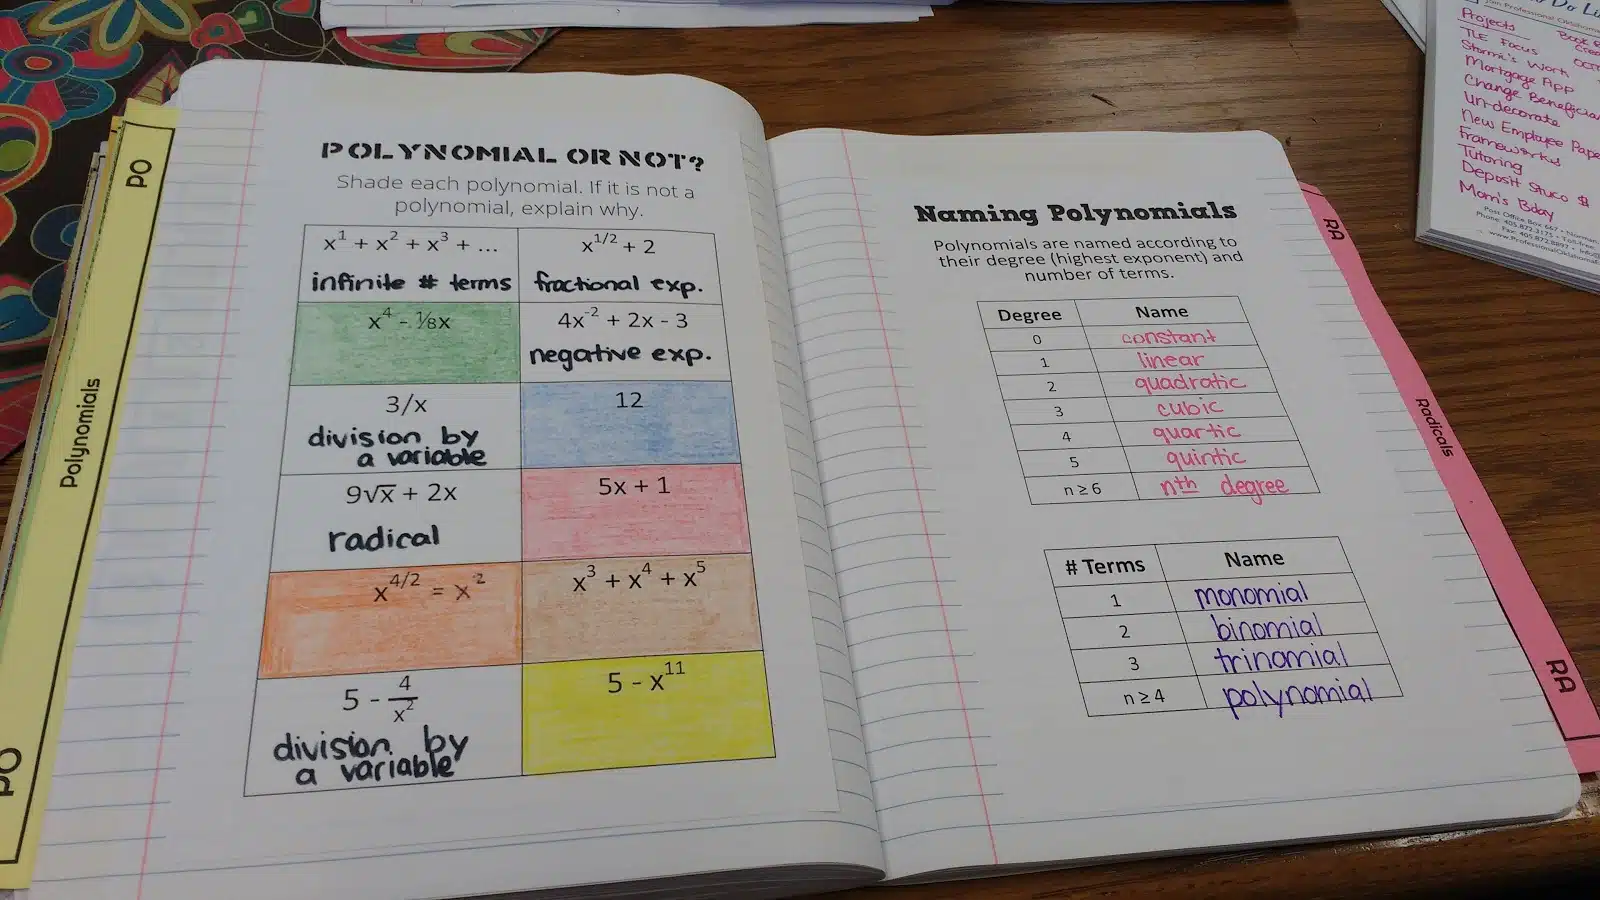 PO
Polynomials
PO
POLYNOMIAL OR NOT?
Shade each polynomial. If it is not a
polynomial, explain why.
x¹ + x² + x³ + ...
infinite # terms
x^1/2 + 2
fractional exp.
x⁴ - ⅛x
4x⁻² + 2x - 3
negative exp.
3/x
division by
a variable
12
9√x + 2x
radical
5x + 1
x^4/2 = x²
x³ + x⁴ + x⁵
5 - 4/x²
division by
a variable
5 - x¹¹
Naming Polynomials
Polynomials are named according to
their degree (highest exponent) and
number of terms.
Degree Name
0 constant
1 linear
2 quadratic
3 cubic
4 quartic
5 quintic
n ≥ 6 nth degree
# Terms Name
1 monomial
2 binomial
3 trinomial
n ≥ 4 polynomial
RA
Radicals
RA
Do
Join Professional Oklahoma
Projects
Book
TLE Focus
Stormi's Work
Mortgage App
Change
Un-decorate
New Employee
Frameworks
Tutoring
Deposit Stuco $
Mom's Bday
Post Office Box 667 • Norman
Phone: 405.872.3175 • Toll-free
Fax: 405.872.8897 •